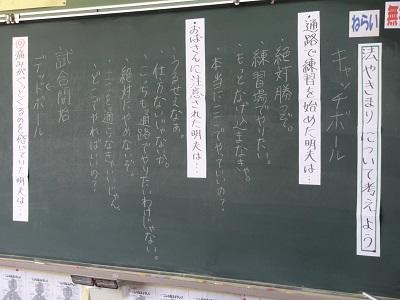 ねらい
無
法やきまりについて考えよう
キャッチボール
通路で練習を始めた明夫は…
・絶対勝つぞ。
・練習場でやりたい。
・もっとなげ込まなきゃ。
・本当にここでやっていいの?
おばさんに注意された明夫は…
・うるせえなあ。
・仕方ないじゃないか。
・こっちも通路でやりたいわけじゃない。
・絶対にやめないぞ。
・ここを通らなきゃいいじゃん。
・どこでやればいいの?
試合開始
デッドボール
痛みがつたわってくるのを感じていた明夫は…